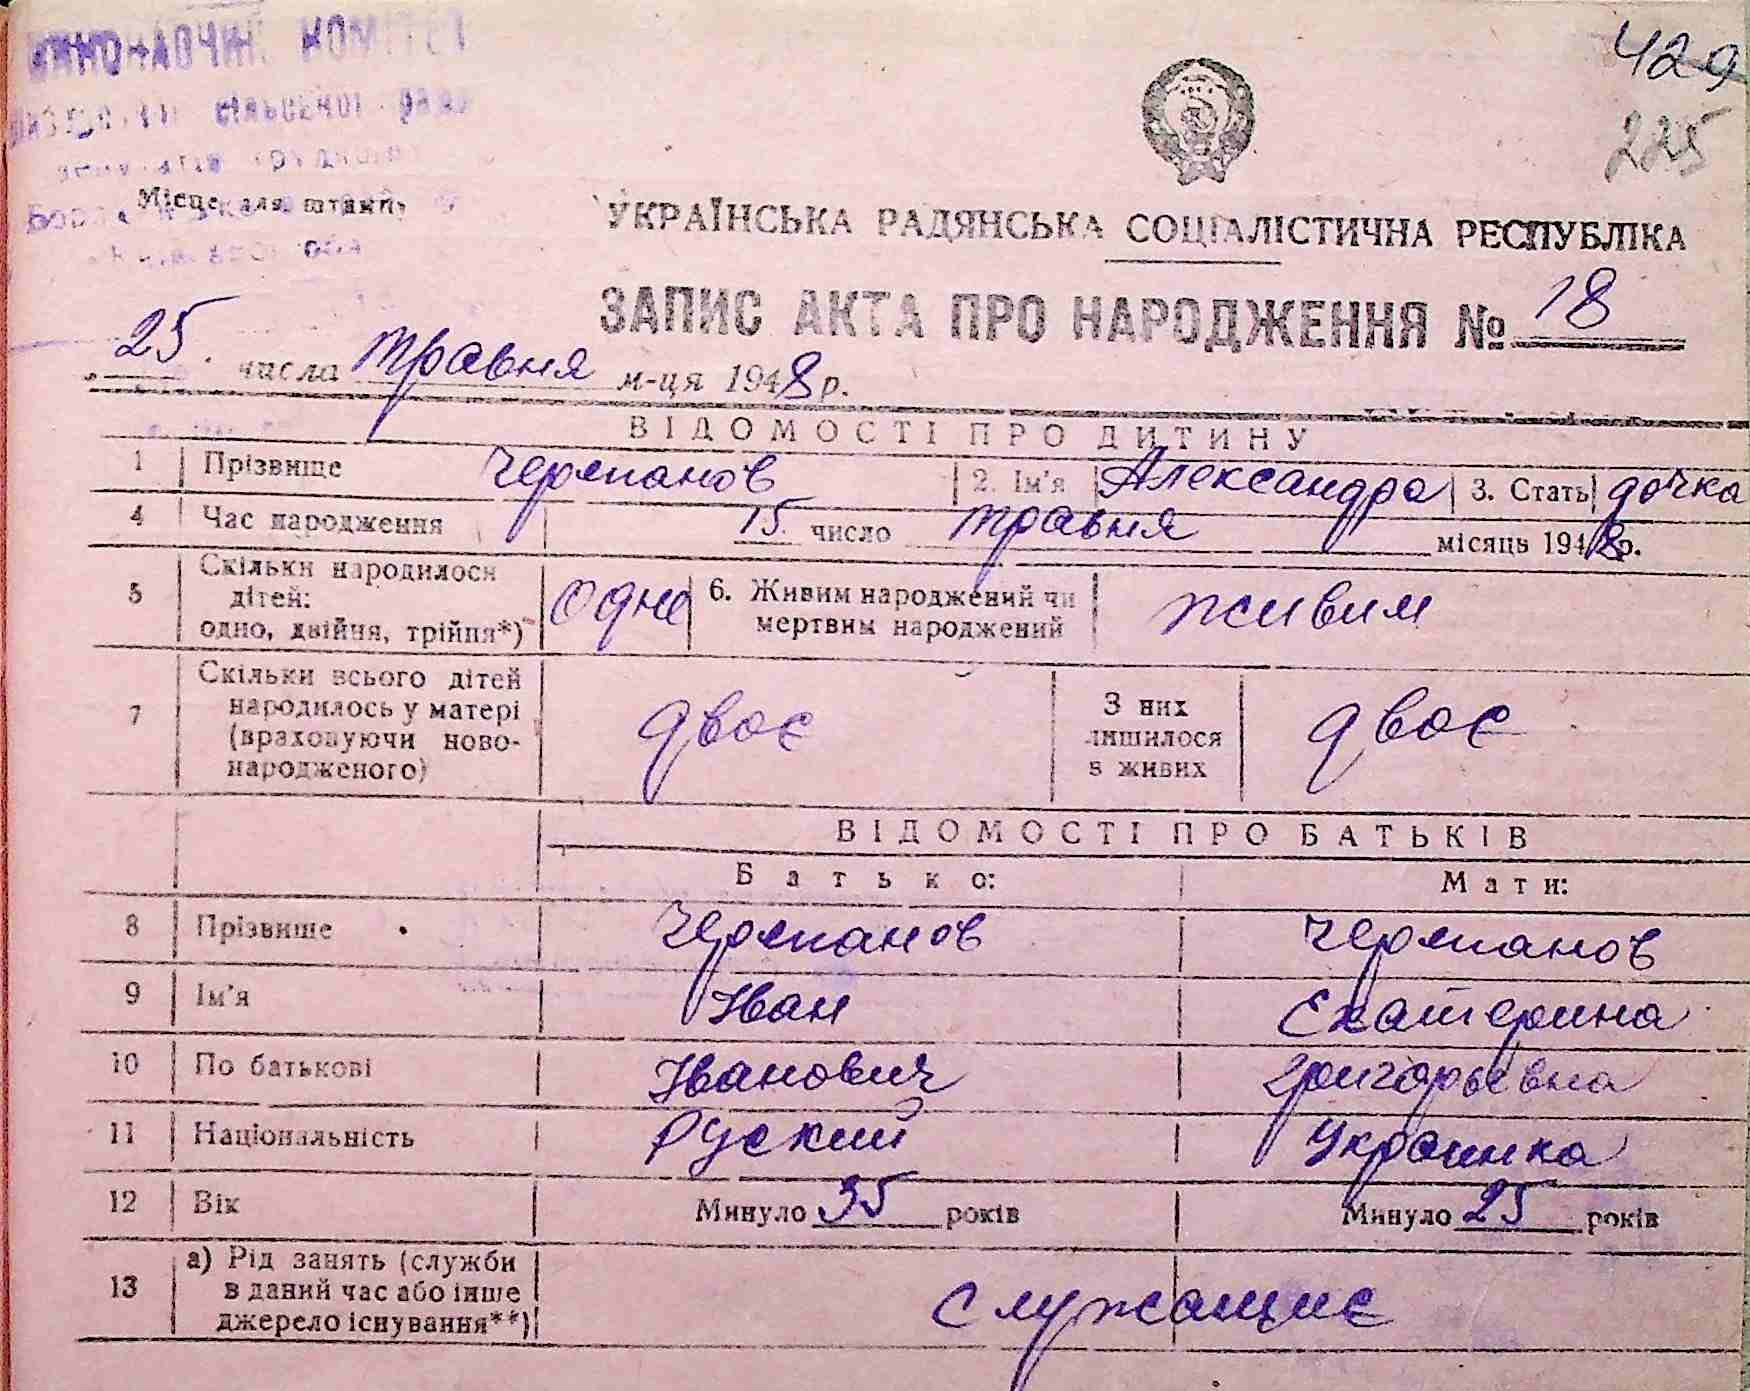 429
225
КОМІТЕТ
сільської ради
Місце для штампу
УКРАЇНСЬКА РАДЯНСЬКА СОЦІАЛІСТИЧНА РЕСПУБЛІКА
ЗАПИС АКТА ПРО НАРОДЖЕННЯ № 18
25 числа травня м-ця 1948 р.
ВІДОМОСТІ ПРО ДИТИНУ
1 Прізвище Черепанов 2. Ім'я Александра 3. Стать дочка
4 Час народження 15 число травня місяць 1948 р.
5 Скільки народилося дітей: одно, двійня, трійня*) одно 6. Живим народжений чи мертвим народжений живим
7 Скільки всього дітей народилось у матері (враховуючи ново-народженого) двоє З них лишилося в живих двоє
ВІДОМОСТІ ПРО БАТЬКІВ
Батько: Мати:
8 Прізвище Черепанов Черепанов
9 Ім'я Іван Екатерина
10 По батькові Іванович Григорьевна
11 Національність Руский Украинка
12 Вік Минуло 35 років Минуло 25 років
13 а) Рід занять (служби в даний час або інше джерело існування**) Служащие